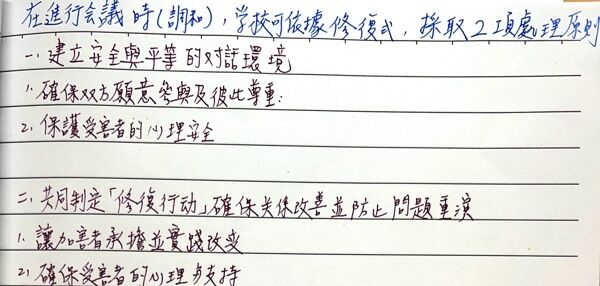 在進行会議時(調和),学校可依據修復式,採取2項處理原則
一、建立安全與平等的对話環境
1.確保双方願意参與及彼此尊重:
2.保護受害者的心理安全
二、共同判定「修復行动」確保关係改善並防止問題重演
1.讓加害者承擔並實踐改变
2.確保受害者的心理与支持